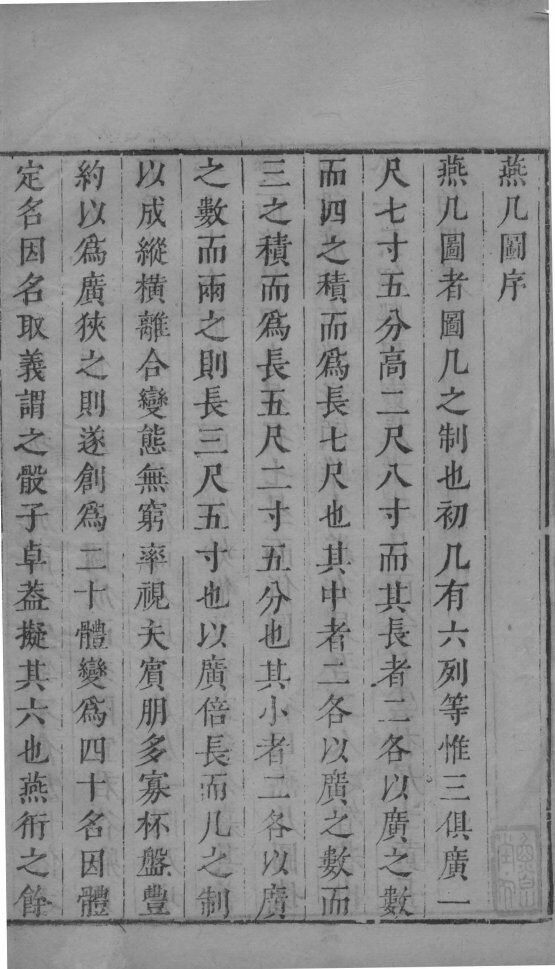 燕几圖序
燕几圖者圖几之制也初几有六列等惟三俱廣一
尺七寸五分高二尺八寸而其長者二各以廣之數
而四之積而爲長七尺也其中者二各以廣之數而
三之積而爲長五尺二寸五分也其小者二各以廣
之數而兩之則長三尺五寸也以廣倍長而几之制
以成縱橫離合變態無窮率視夫賓朋多寡杯盤豐
約以爲廣狹之則遂創爲二十體變爲四十名因體
定名因名取義謂之骰子卓葢擬其六也燕衎之餘